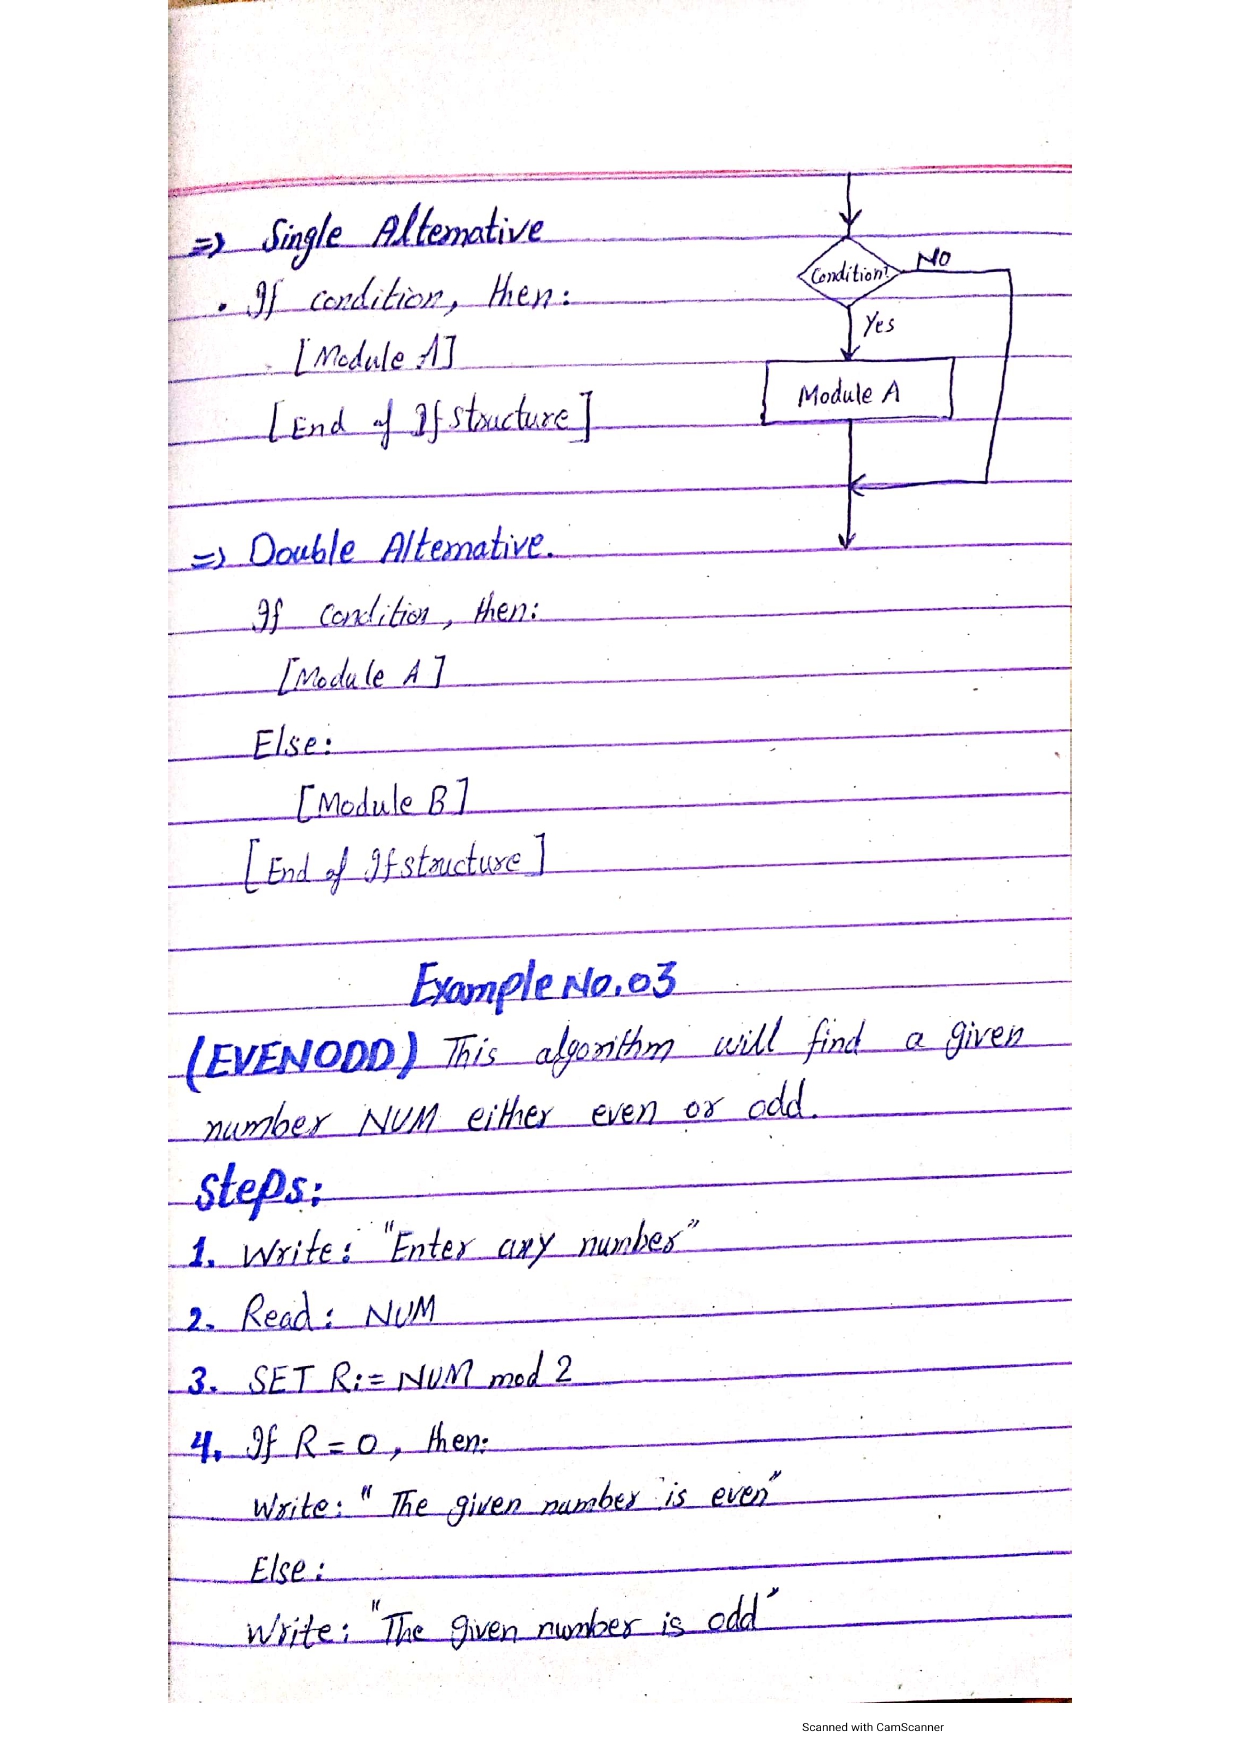 => Single Alternative
. If condition, then:
[Module A]
[End of If structure]
Condition?
NO
Yes
Module A
=> Double Alternative.
If condition, then:
[Module A]
Else:
[Module B]
[End of If structure]
Example No.03
(EVENODD) This algorithm will find a given
number NUM either even or odd.
Steps:
1. Write: "Enter any number"
2. Read: NUM
3. SET R:= NUM mod 2
4. If R = 0, then:
Write: "The given number is even"
Else:
Write: "The given number is odd"
Scanned with CamScanner